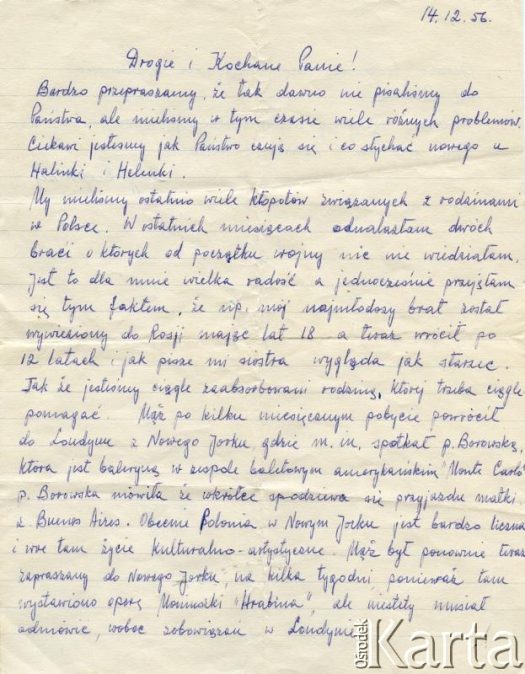 14.12.56.
Drogie i Kochane Panie!
Bardzo przepraszamy, że tak dawno nie pisaliśmy do
Państwa, ale mieliśmy w tym czasie wiele różnych problemów.
Ciekawi jesteśmy jak Państwo czują się i co słychać nowego u
Halinki i Helenki.
My mieliśmy ostatnio wiele kłopotów związanych z rodzinami
w Polsce. W ostatnich miesiącach odnalazłam dwóch
braci o których od początku wojny nic nie wiedziałam.
Jest to dla mnie wielka radość a jednocześnie
się tym faktem, że np. mój najmłodszy brat został
wywieziony do Rosji mając lat 18 a teraz wrócił po
12 latach i jak pisze mi siostra wygląda jak starzec.
Tak że jesteśmy ciągle zaabsorbowani rodziną, której trzeba ciągle
pomagać. Mąż po kilku miesięcznym pobycie powrócił
do Londynu z Nowego Jorku, gdzie m.in. spotkał p. Borowską,
która jest baleryną w zespole baletowym amerykańskim "Monte Carlo"
p. Borowska mówiła że wkrótce spodziewa się przyjazdu matki
z Buenos Aires. Obecnie Polonia w Nowym Jorku jest bardzo liczna
i wre tam życie kulturalno-artystyczne. Mąż był ponownie teraz
zapraszany do Nowego Jorku, na kilka tygodni, ponieważ tam
wystawiono operę Moniuszki "Hrabina", ale niestety musiał
odmówić, wobec zobowiązań w Londynie.
ośrodek Karta